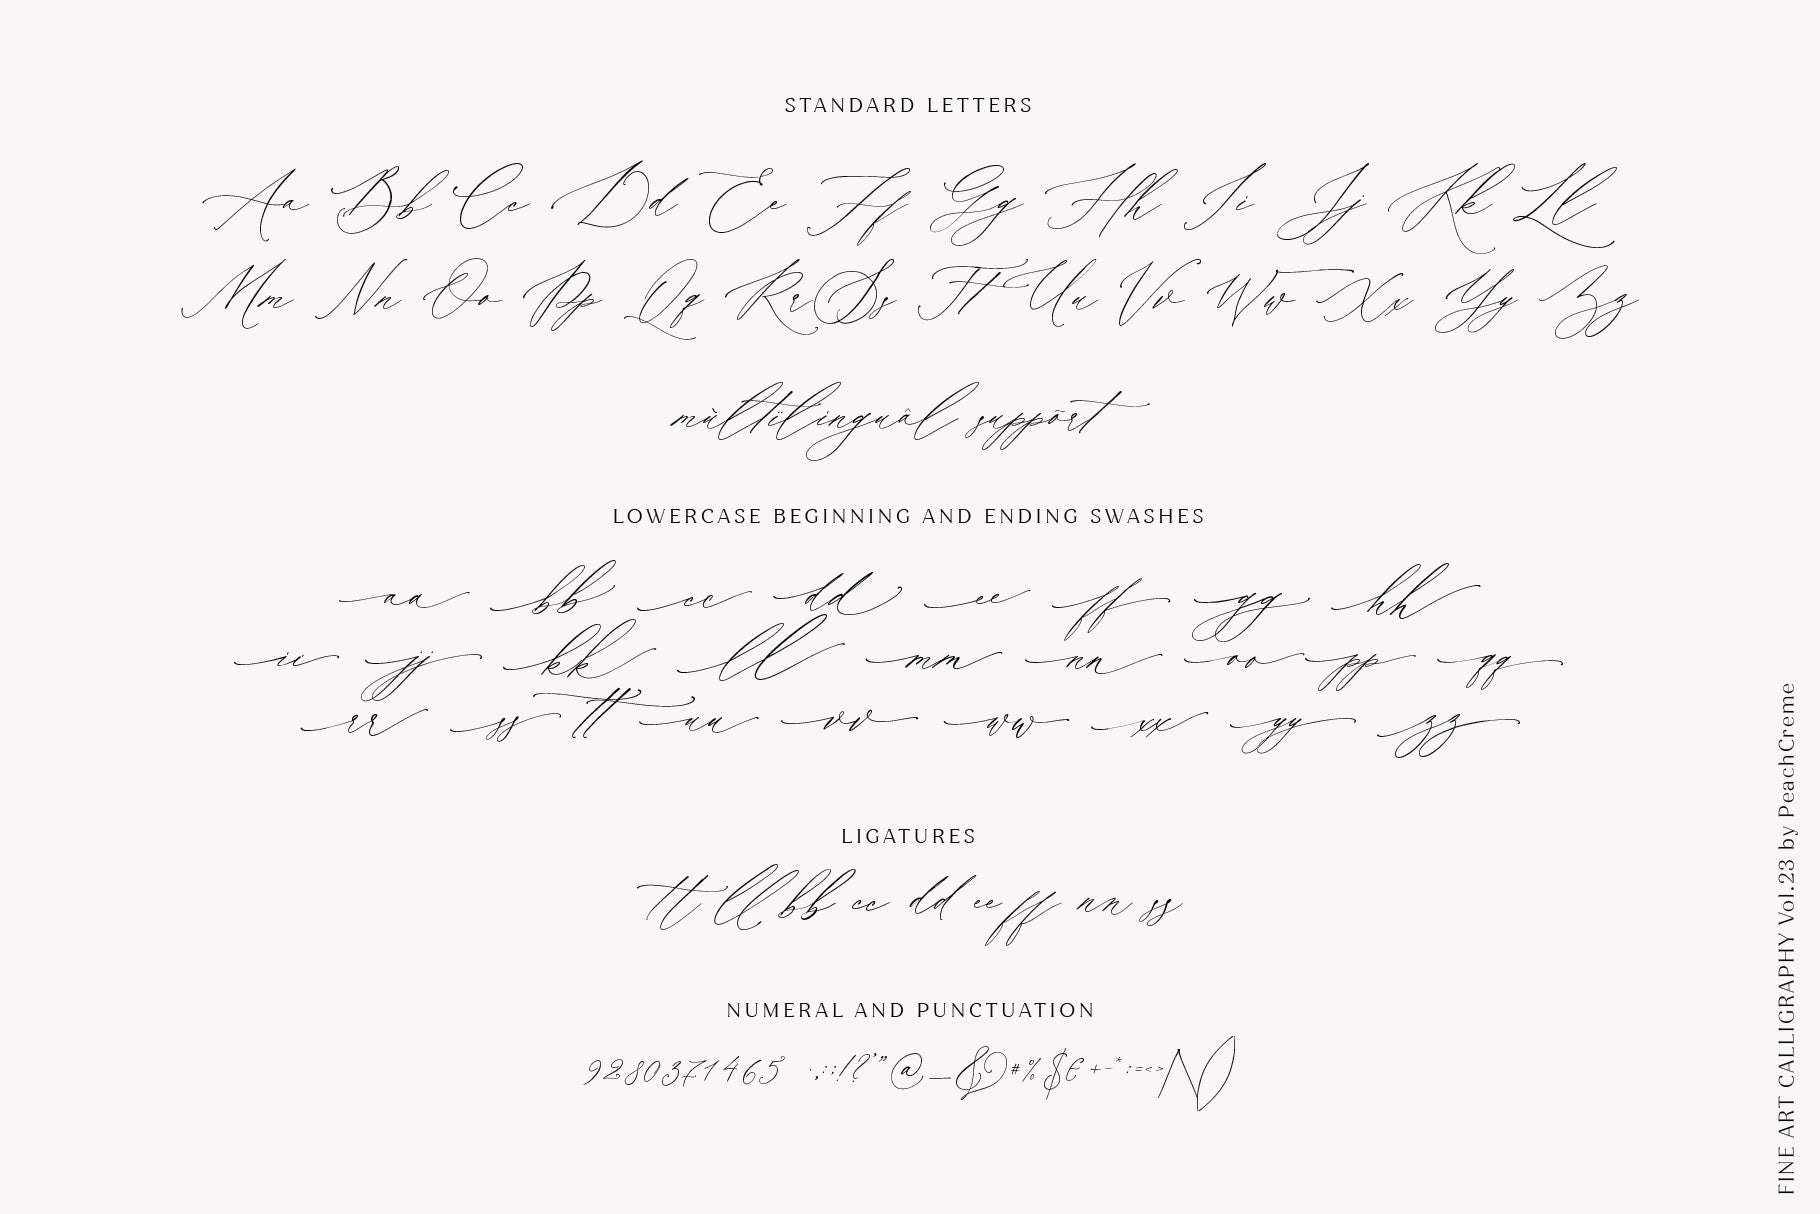 STANDARD LETTERS
Aa Bb Cc Dd Ee Ff Gg Hh Ii Jj Kk Ll
Mm Nn Oo Pp Qq Rr Ss Tt Uu Vv Ww Xx Yy Zz
mùltïlinguâl suppõrt
LOWERCASE BEGINNING AND ENDING SWASHES
aa bb cc dd ee ff gg hh
ii jj kk ll mm nn oo pp qq
rr ss tt uu vv ww xx yy zz
LIGATURES
tt ll bb cc dd ee ff nn ss
NUMERAL AND PUNCTUATION
9280371465 .,:;!?'"@_&#%$€+-*:=<>
FINE ART CALLIGRAPHY Vol.23 by PeachCreme